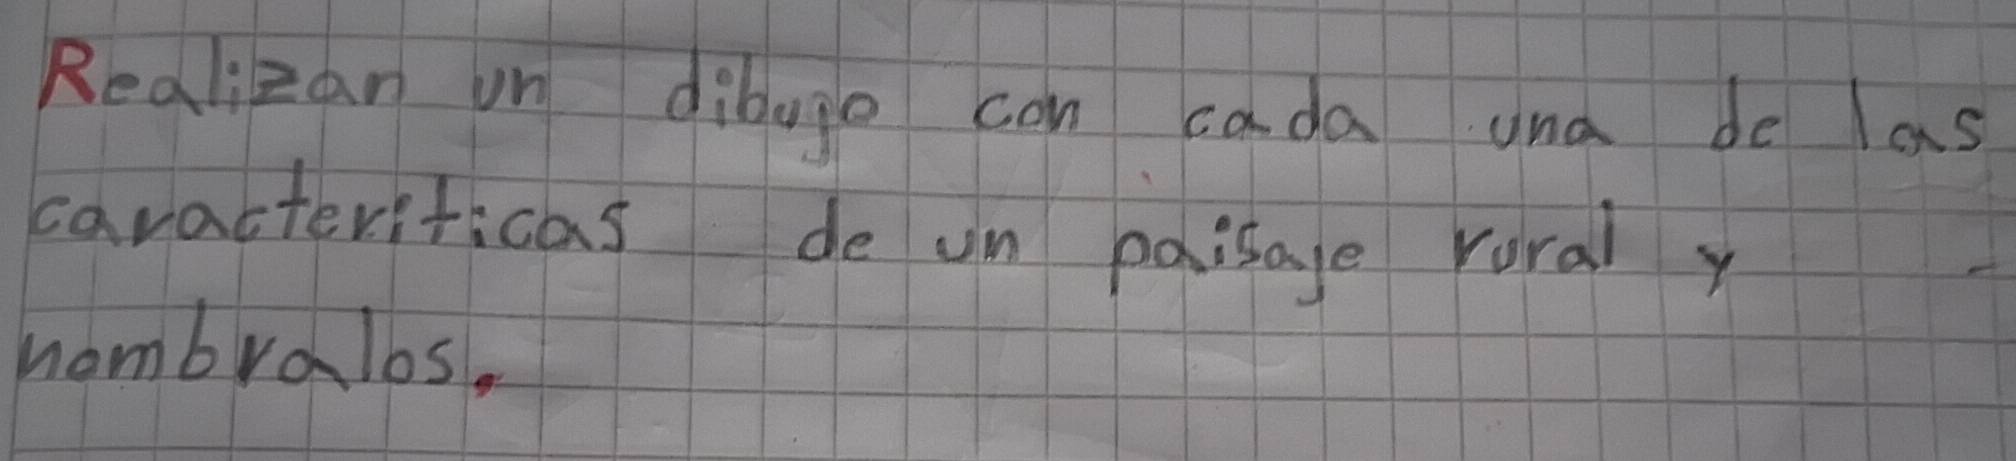 Realizan un dibujo con cada una de las
caracteriticas de un paisaje rural y -
nombralos.